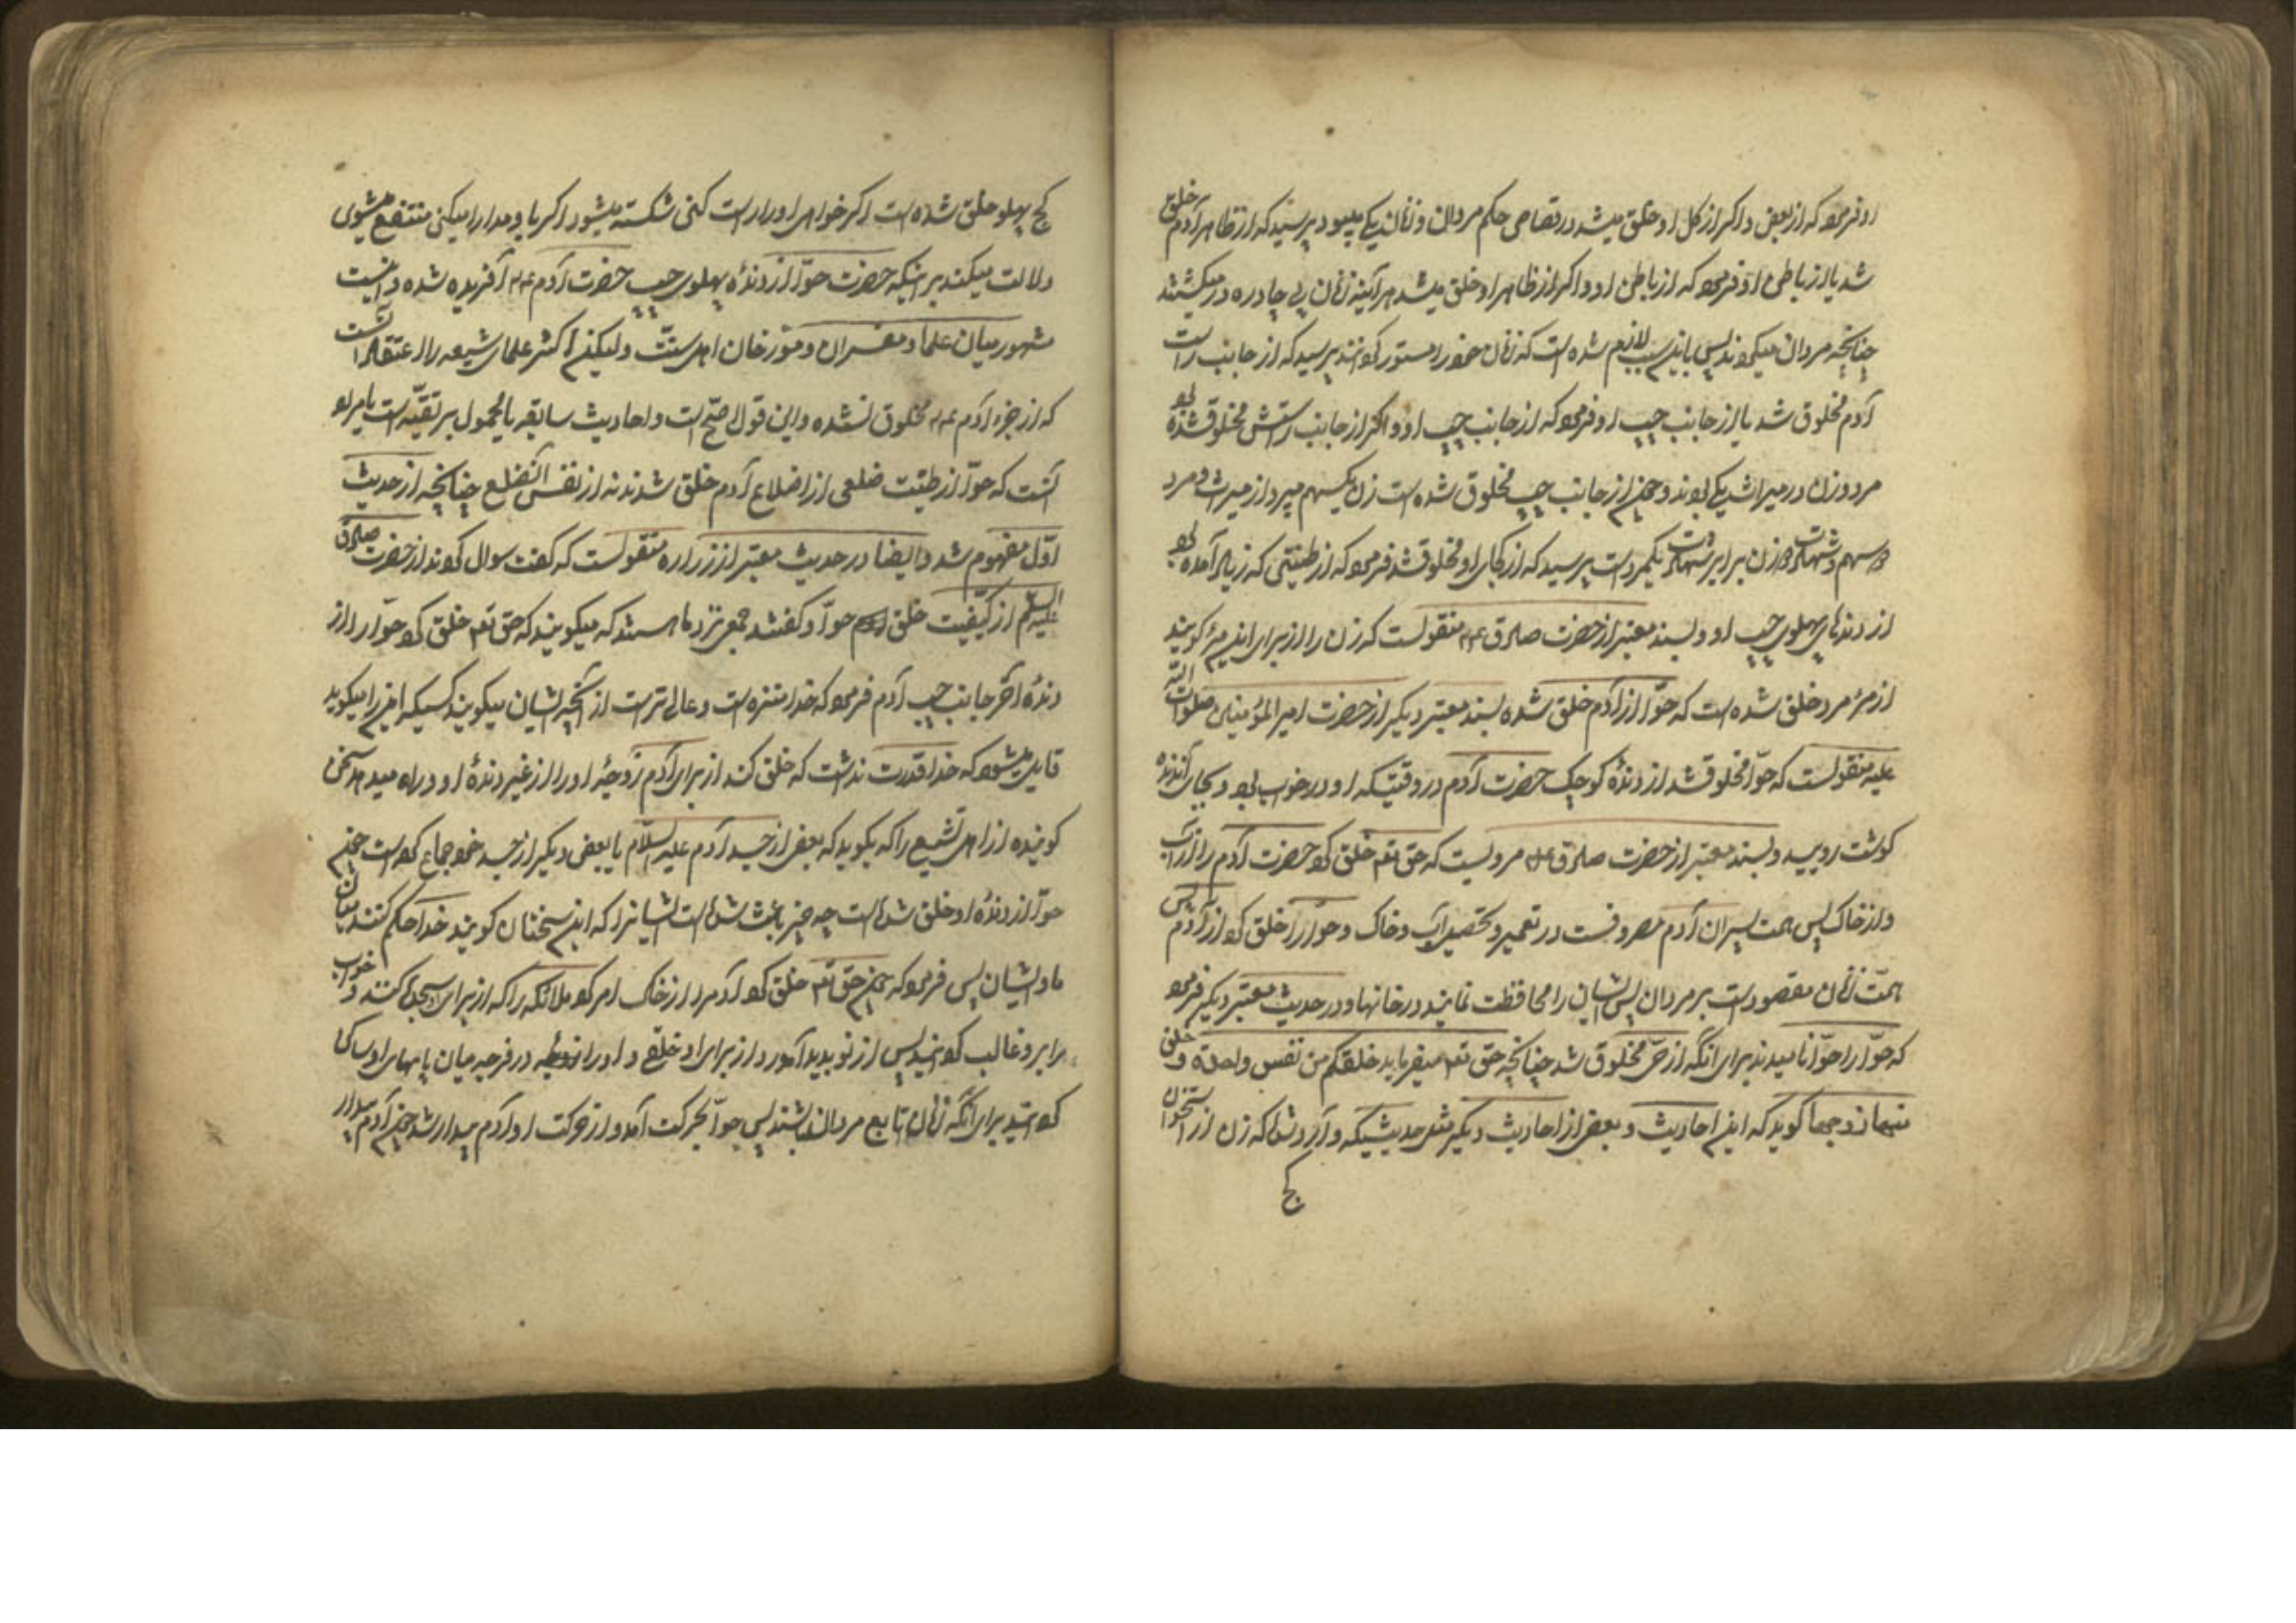 او فرمود که از بعض و اگر از کل او خلق میشد در قصاص حکم مردان و زنان یکی میبود پرسید که از ظاهر آدم خلق
شد یا از باطن او فرمود که از باطن او و اگر از ظاهر او خلق میشد هر آینه زنان بی چادر در میکشتند
چنانچه مردان میکردند پس باین سبب لازم شده است که زنان خود را مستور کردانند پرسید که از جانب راست
آدم مخلوق شد یا از جانب چپ او فرمود که از جانب چپ او و اگر از جانب راستش مخلوق شده بود
مرد و زن در میراث یکی بودند و چون از جانب چپ مخلوق شده است زن یکسهم میبرد از میراث و مرد
دو سهم و شهادت دو زن برابر شهادت یکمرد است پرسید که از کجای او مخلوق شد فرمود که از طینتی که زیاد آمده بود
از دندهای پهلوی چپ او و بسند معتبر از حضرت صادق ع م منقولست که زن را از برای این مرئه کویند
از مرء مرد خلق شده است که حوّا از آدم خلق شده بسند معتبر دیگر از حضرت امیر المؤمنین صلوات الله
علیه منقولست که حوّا مخلوق شد از دندهٔ کوچک حضرت آدم در وقتیکه او در خواب بود و بجای آندنده
کوشت رویید و بسند معتبر از حضرت صادق ع م مرویست که حق تعه خلق کرد حضرت آدم را از آب
و از خاک پس همت پسران آدم مصروفست در تعمیر و تحصیل آب و خاک و حوّا را خلق کرد از آدم پس
همّت زنان مقصور است بر مردان پس ایشان را محافظت نمایند در خانها و در حدیث معتبر دیگر فرمود
که حوّا را حوّا نامیدند برای آنکه از حیّ مخلوق شد چنانچه حق تعه میفرماید خلقکم من نفس واحدة و خلق
منها زوجها کوید که این احادیث و بعض از احادیث دیگر مثل حدیثیکه وارد شده که زن از استخوان
کج
کج پهلو خلق شده است اگر خواهی او را راست کنی شکسته میشود اگر با او مدارا میکنی منتفع میشوی
دلالت میکند بر اینکه حضرت حوّا از دندهٔ پهلوی چپ حضرت آدم ع م آفریده شده و اینست
مشهور میان علما و مفسران و مورّخان اهل سنّت ولیکن اکثر علمای شیعه را اعتقاد آنست
که از جزء آدم ع م مخلوق نشده و این قول اصّح است و احادیث سابقه یا محمول بر تقیّه است یا مراد
آنست که حوّا از طینت ضلعی از اضلاع آدم خلق شد نه از نفس الضلع چنانچه از حدیث
اوّل مفهوم شد و ایضا در حدیث معتبر از زراره منقولست که گفت سوال کردند از حضرت صادق
علیه السلم از کیفیت خلق حوّا و گفتند جمعی نزد ما هستند که میکویند که حق تعه خلق کرد حوّا را از
دندهٔ آخر جانب چپ آدم فرمود که خدا منزه است و عالی تر است از آنچه ایشان میکویند کسیکه این را میکوید
قایل میشود که خدا قدرت نداشت که خلق کند از برای آدم زوجهٔ او را از غیر دندهٔ او و راه میدهد سخن
کوینده از اهل تشنیع را که بکوید که بعض از جسد آدم علیه السّلام با بعض دیگر از جسد خود جماع کرده است چون
حوّا از دندهٔ او خلق شده است چه چیز باعث شده است ایشانرا که این سخنان کویند خدا حکم کند میان
ما و ایشان پس فرمود که چون حق تعه خلق کرد آدم را از خاک امر کرد ملائکه را که از برای او سجده کنند و خواب
را بر او غالب کردانید پس از نو پدید آورد از برای او خلقی و او را در فرجه میان پاهای او ساکن
کردانید برای آنکه زنان تابع مردان باشند پس حوّا بحرکت آمد و از حرکت او آدم بیدار شد چون آدم بیدار